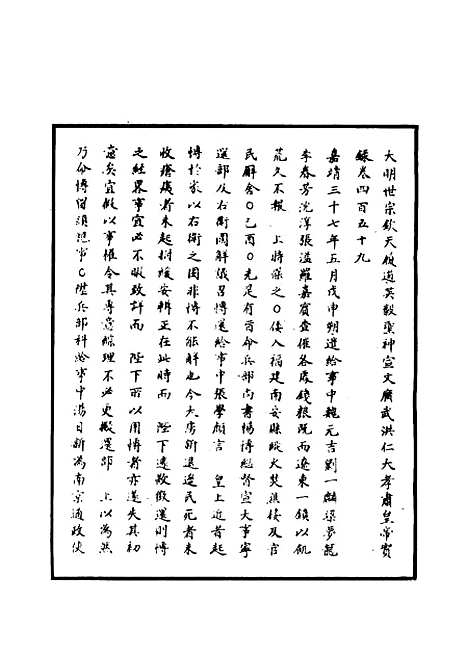 大明世宗欽天履道英毅聖神宣文廣武洪仁大孝肅皇帝實
錄卷四百五十九
嘉靖三十七年五月戊申朔遣給事中魏元吉劉一麟梁夢龍
李春芳沈淳張滋羅嘉賓查催各處錢糧既而遼東一鎮以飢
荒久不報　上特寢之〇倭入福建南安縣縱火焚燬樓及官
民廨舍〇己酉〇先是有旨命兵部尚書楊博總督宣大事寧
還部及右衛圍解議召博還給事中張學顏言　皇上近者起
博於家以右衛之圍非博不能解也今大虜新退邊民死者未
收瘡痍者未起撫綏安輯正在此時而　陛下遽欲徵還則博
之經畧事宜必不暇致詳而　陛下所以用博者亦遂失其初
意矣宜假以事權令其專意綜理不必更擬還部　上以為然
乃命博留鎮視事〇陞兵部科給事中湯日新為南京通政使